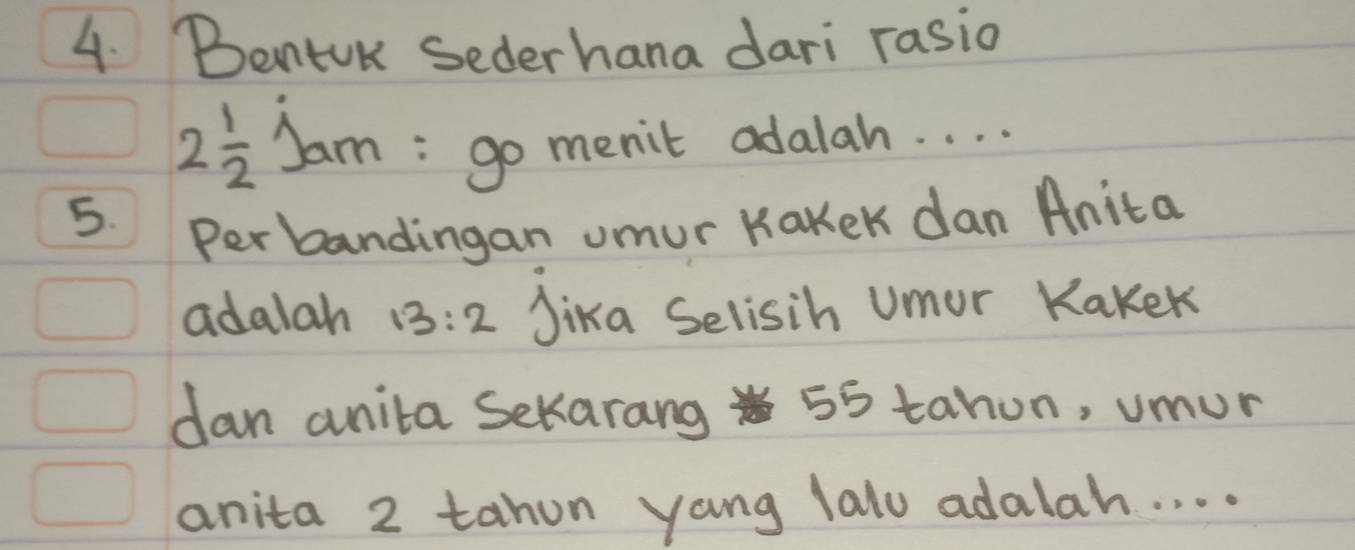 4. Bentuk Sederhana dari rasio
2 1/2 Jam : 90 menit adalah....
5. Perbandingan umur Kakek dan Anita
adalah 13:2 Jika Selisih Umur Kakek
dan anita Sekarang 55 tahun, umur
anita 2 tahun yang lalu adalah....